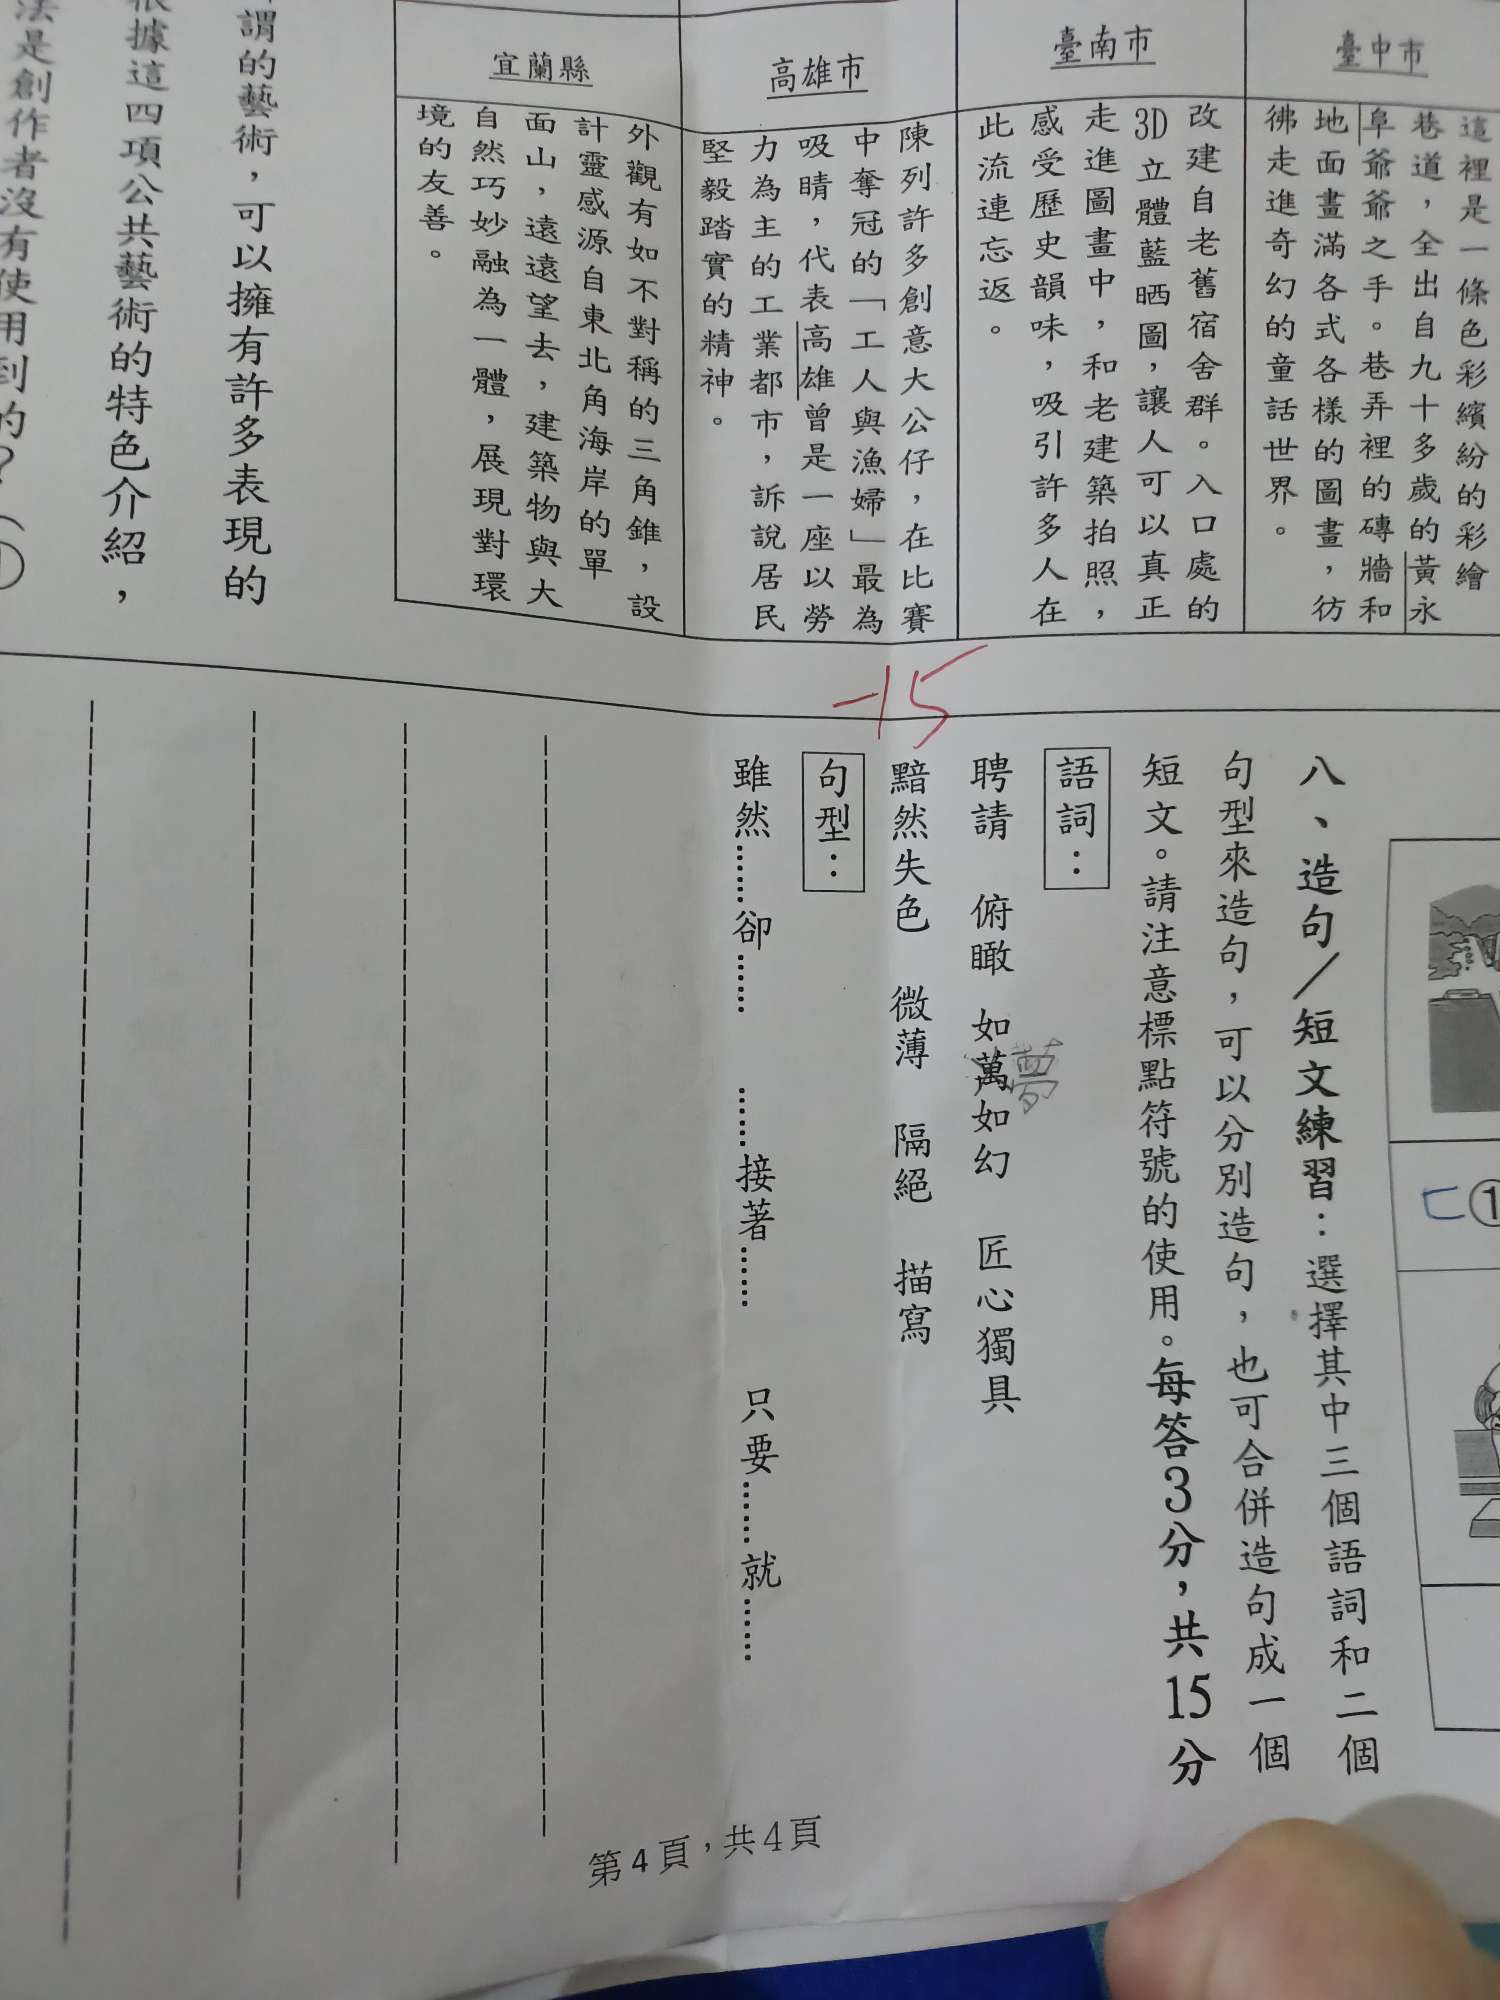 臺中市
這裡是一條色彩繽紛的彩繪
巷道，全出自九十多歲的黃永
阜爺爺之手。巷弄裡的磚牆和
地面畫滿各式各樣的圖畫，彷
彿走進奇幻的童話世界。
臺南市
改建自老舊宿舍群。入口處的
3D立體藍晒圖，讓人可以真正
走進圖畫中，和老建築拍照，
感受歷史韻味，吸引許多人在
此流連忘返。
高雄市
陳列許多創意大公仔，在比賽
中奪冠的「工人與漁婦」最為
吸睛，代表高雄曾是一座以勞
力為主的工業都市，訴說居民
堅毅踏實的精神。
宜蘭縣
外觀有如不對稱的三角錐，設
計靈感源自東北角海岸的單
面山，遠遠望去，建築物與大
自然巧妙融為一體，展現對環
境的友善。
謂的藝術，可以擁有許多表現的
根據這四項公共藝術的特色介紹，
法是創作者沒有使用到的？（①
-15
ㄈ①
八、造句／短文練習：選擇其中三個語詞和二個
句型來造句，可以分別造句，也可合併造句成一個
短文。請注意標點符號的使用。每答3分，共15分
語詞：
聘請 俯瞰 如萬如幻 匠心獨具
夢
黯然失色 微薄 隔絕 描寫
句型：
雖然……卻…… ……接著…… 只要……就……
第4頁，共4頁